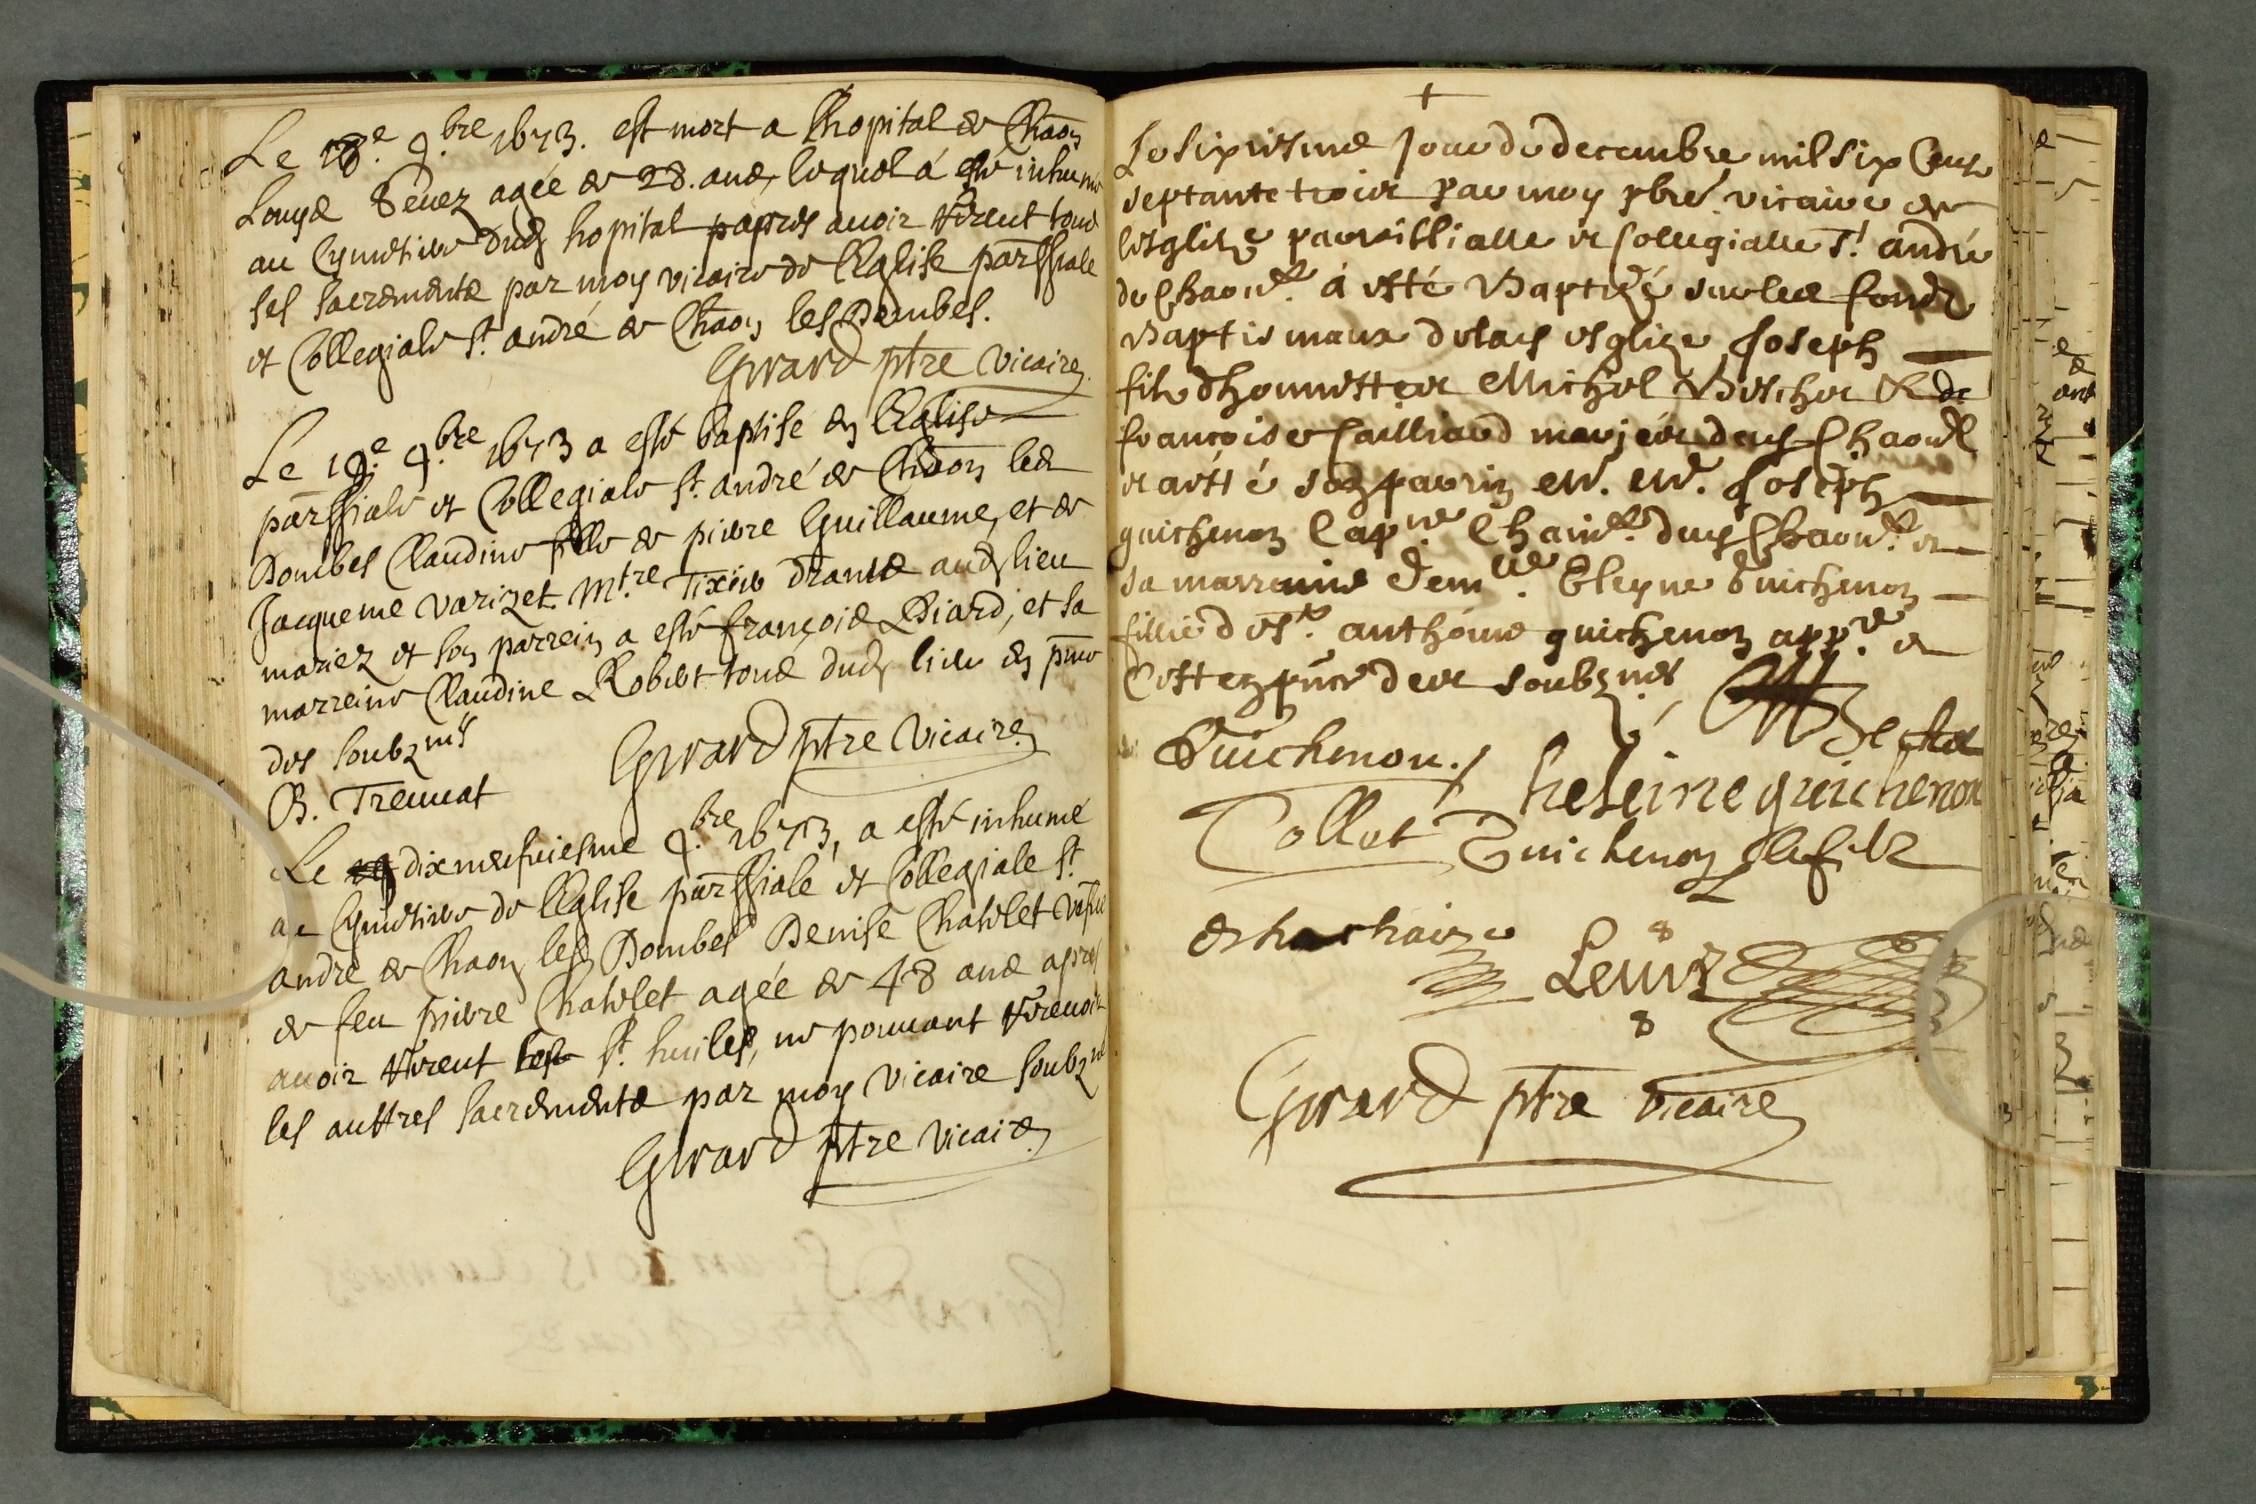 Le 18.e 9.bre 1673. est mort a lhopital de Chaon
Louys Seuez agée de 28. ans, lequel á esté inhumé
au Cymetiere dud hopital apres auoir receut tous
ses sacrements par moy vicaire de lEglise parrssiale
et Collegiale st. andré de Chaon les Dombes.
Girard ptre vicaire
Le 19.e 9.bre 1673 a esté baptisé en lEglise
parrssiale et Collegiale st. andré de Chaon les
Dombes Claudine fille de pierre Guillaume, et de
Jacqueme Varizet. Mtre Tixier drants aud lieu
mariez et son parrein a esté françois Biard, et sa
marreine Claudine Robert tous dud lieu en pnce
des soubznés
B. Tremat
Girard ptre vicaire
Le dixneufuiesme 9.bre 1673, a esté inhumé
au Cymetiere de lEglise parrssiale et Collegiale st.
andré de Chaon les Dombes Denise Chatelet
de feu pierre Chatelet agée de 48 ans apres
auoir receut les st. huiles, ne pouuant receuoir
les auttres sacrements par moy vicaire soubzné
Girard ptre vicaire
+
Le sixiesme Jour de decembre mil six Cens
septante trois par moy pbre. vicaire de
lesglize parroissialle et Collegialle St. andré
de Chaon. á esté Baptizé sur les fonds
Baptismaux de lad esglize Joseph
fils dhonnestes Michel Beschet & de
françoise Cailliard mariés dud Chaon
et a esté son parrin Mr. Mr. Joseph
guichenon Cap.ne Chain. dud Chaon. et
sa marreine dem.lle Eleyne Guichenon
fillie de sr. anthoine guichenon app.re et
Cest en pnce des soubznés
Guichenon.
heleine guichenon
Collet Guichenon le filz
Girard ptre vicaire